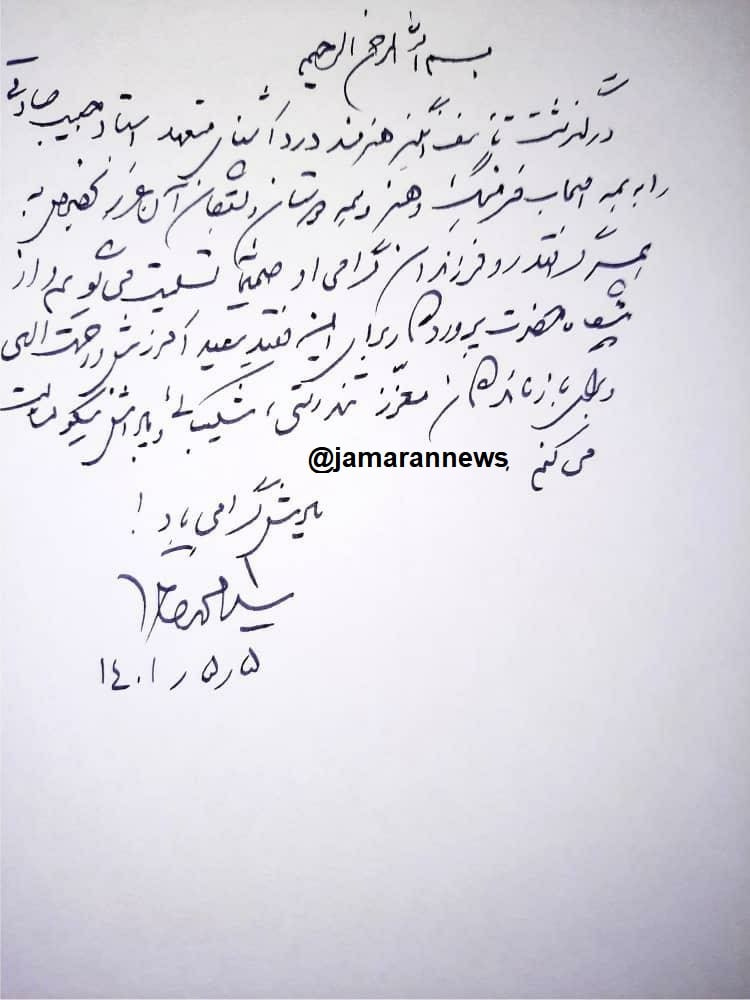 بسم الله الرحمن الرحیم
درگذشت تأسف انگیز هنرمند دردآشنای متعهد استاد حبیب صادقی
را به همه اصحاب فرهنگ و هنر و همه دوستان و آن عزیز بخصوص به
همسر گرانقدر و فرزندان گرامی او صمیمانه تسلیت می گویم و از
پیشگاه حضرت پروردگار برای این فقید سعید آمرزش و رحمت الهی
و برای بازماندگان معزّز تندرستی، شکیبائی و پاداش نیکو مسالت
می کنم
@jamarannews
یادش گرامی باد!
سید محمد خاتمی
۱۴۰۱٫۵٫۵